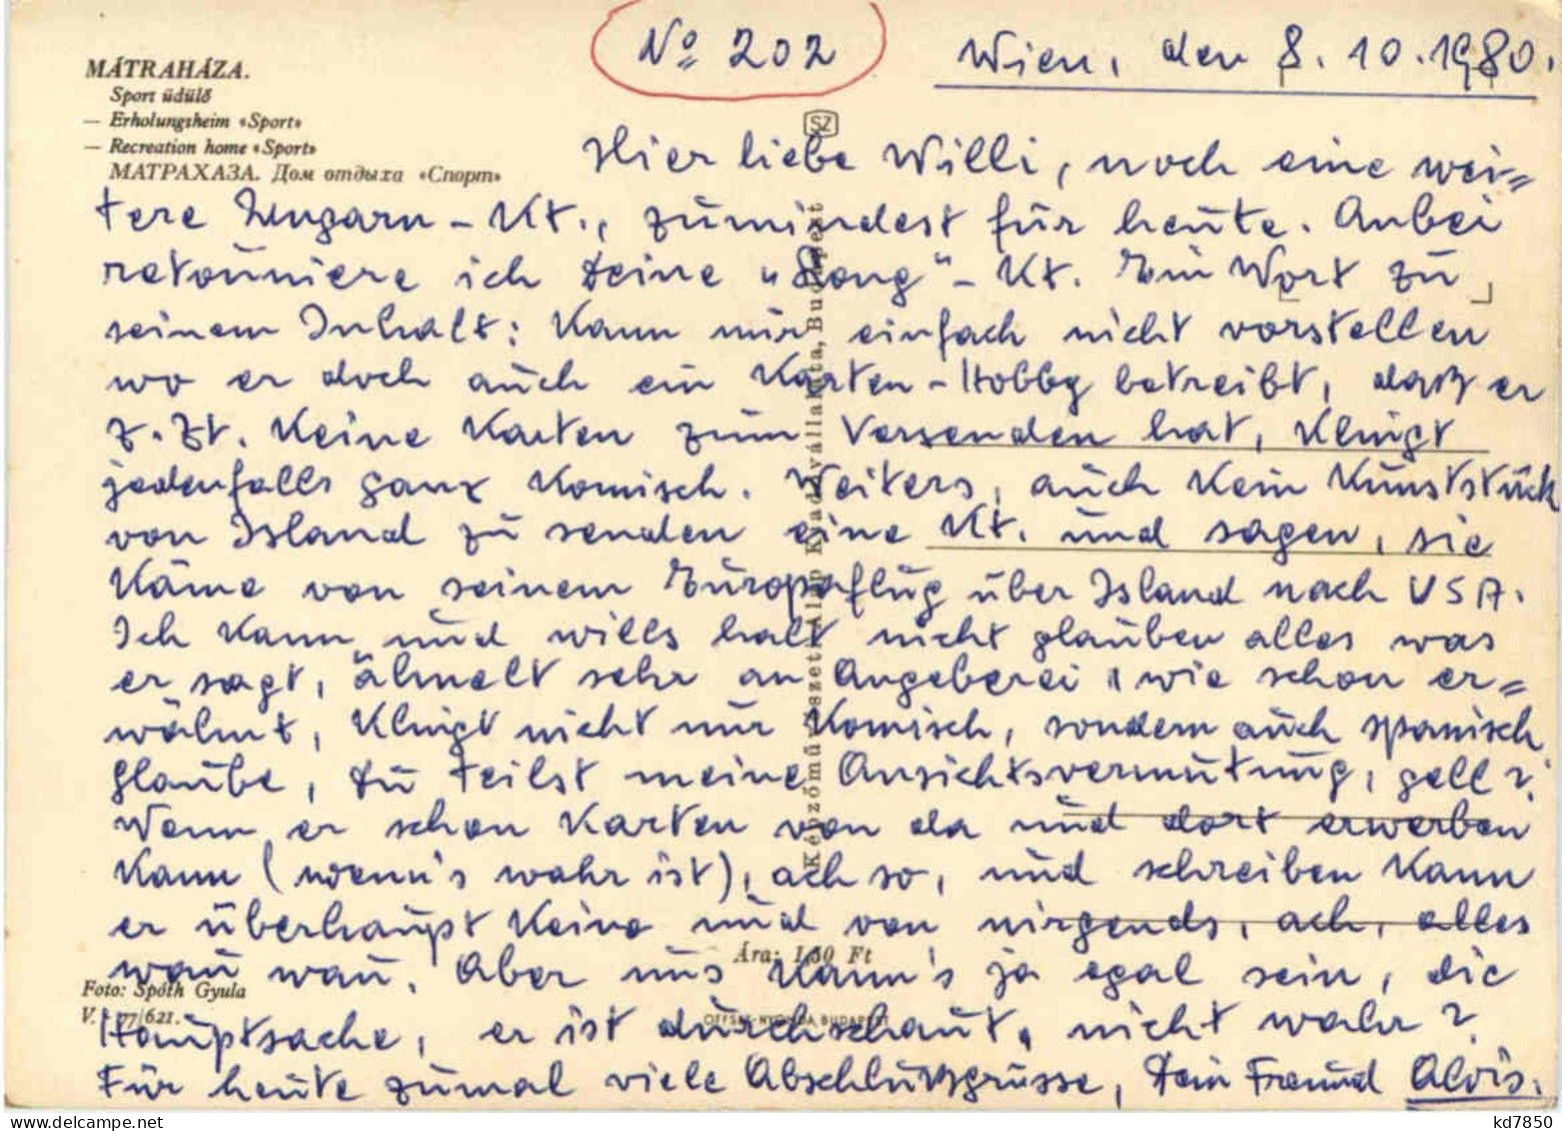 No 202
Wien, den 8.10.1980.
MÁTRAHÁZA.
Sport üdülő
— Erholungsheim «Sport»
— Recreation home «Sport»
МАТРАХАЗА. Дом отдыха «Спорт»
SZ
Hier liebe Willi, noch eine wei=
tere Ungarn - Kt., zumindest für heute. Anbei
retourniere ich Deine „Song" - Kt. Ein Wort zu
seinem Inhalt: Kann mir einfach nicht vorstellen
wo er doch auch ein Karten-Hobby betreibt, daß er
z. Zt. keine Karten zum Versenden hat, klingt
jedenfalls ganz komisch. Weiters, auch kein Kunststück
von Island zu senden eine Kt. und sagen, sie
käme von seinem Europaflug über Island nach USA.
Ich kann und wills halt nicht glauben alles was
er sagt, ähnelt sehr an Angeberei, wie schon er=
wähnt, klingt nicht nur komisch, sondern auch spanisch
glaube, Du teilst meine Ansichtsvermutung, gell?
Wenn er schon Karten von da und dort erwerben
kann (wenn's wahr ist), ach so, und schreiben kann
er überhaupt keine und von nirgends, ach, alles
wau wau. Aber uns kann's ja egal sein, die
Hauptsache, er ist durchschaut, nicht wahr?
Für heute zumal viele Abschlußgrüsse, Dein Freund Alois.
Képzőművészeti Alap Kiadóvállalata, Budapest
Ára: 1,50 Ft
Foto: Spóth Gyula
77/621.
OFFSET-NYOMDA, BUDAPEST
kd7850